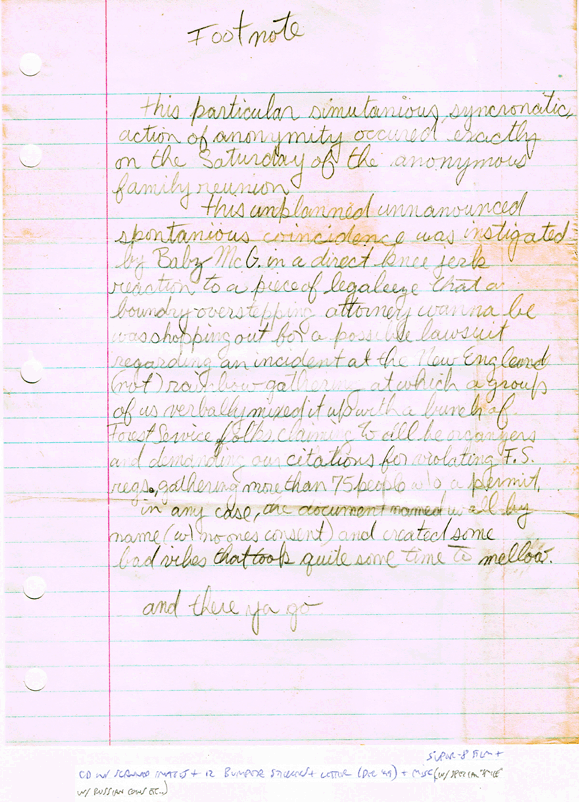 Footnote
this particular simutanious, syncronatic,
action of anonymity occured exactly
on the Saturday of the anonymous
family reunion
this unplanned unnanounced
spontanious coincidence was instigated
by Baby McG. in a direct knee jerk
reaction to a piece of legaleeze that a
boundry overstepping attorney wanna be
was shopping out for a possible lawsuit
regarding an incident at the New England
(not) rainbow gathering at which a group
of us verbally mixed it up with a bunch of
Forest Service folks, claiming to all be organgers
and demanding our citations for violating F.S.
regs., gathering more than 75 people w/o a permit.
in any case, one document named us all by
name (w/ no ones consent) and created some
bad vibes that took quite some time to mellow.
and there ya go
SUPER-8 FILM +
CD w/ SCANNED IMAGES + 12 BUMPER STICKERS + LETTER (DOC 49) + MISC (w/ SPECIAL
w/ RUSSIAN COINS ETC..)